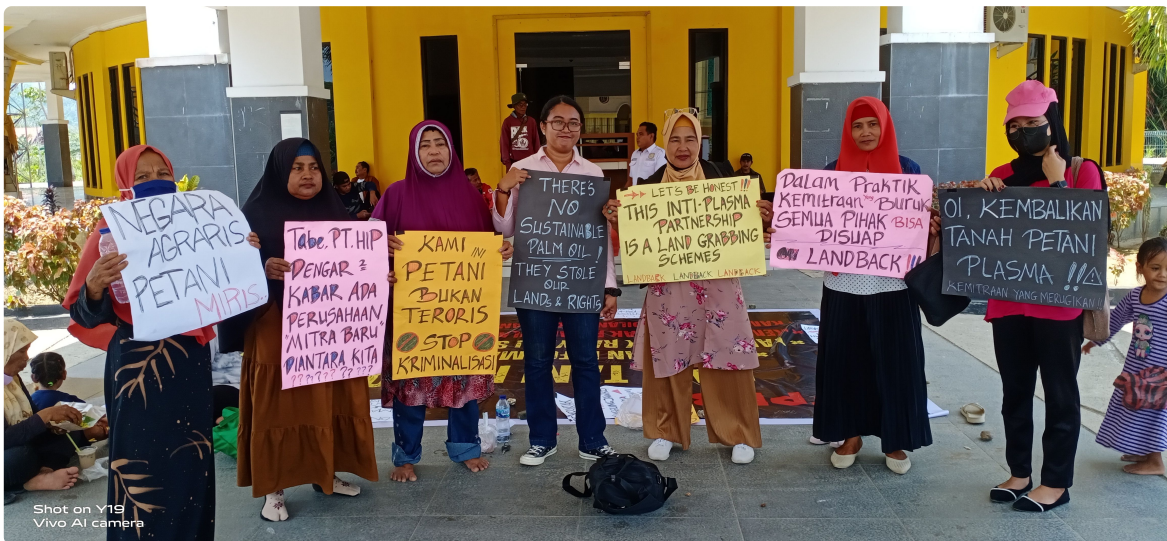 NEGARA
AGRARIS
PETANI
MIRIS.
Tabe, PT. HIP
DENGAR²
KABAR ADA
PERUSAHAAN
"MITRA BARU"
DIANTARA KITA
KAMI INI
PETANI
BUKAN
TERORIS
STOP
KRIMINALISASI
THERE'S
NO
SUSTAINABLE
PALM OIL!
THEY STOLE
OUR
LANDS & RIGHTS
LET'S BE HONEST!!!
THIS INTI-PLASMA
PARTNERSHIP
IS A LAND GRABBING
SCHEMES
LANDBACK LANDBACK LANDBACK
DALAM PRAKTIK
KEMITRAAN BURUK
SEMUA PIHAK BISA
DISUAP
LANDBACK!!!
OI, KEMBALIKAN
TANAH PETANI
PLASMA !!!
KEMITRAAN YANG MERUGIKAN!!
Shot on Y19
Vivo AI camera